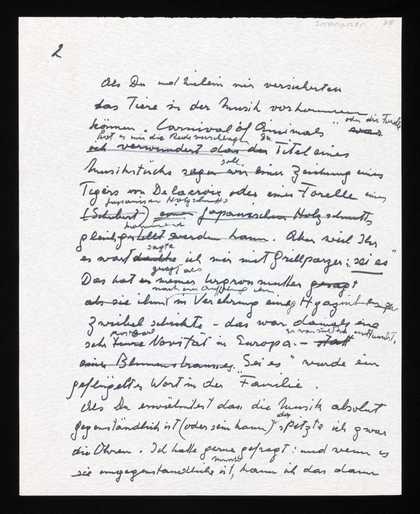 2
Als Du und mir versicherten
das Tiere in der Musik vorkommen oder die Forelle
können. "Carnival of Animals" war
hat es mir die Rede verschlagen. Zu
ich verwundert das der Titel eines
soll
Musikstücks sagen wir einer Zeichnung eines
Tigers von Delacroix oder einer Forelle eines
japanischen Holzschnitts
(Schubert) einem japanischen Holzschnitt
gleichgestellt werden kann. Aber weil Ihr
sagte
es wart dachte ich mir mit Grillparzer: "sei es"
Das hat er meiner Urgrossmutter gesagt
als sie ihm in Verehrung eine Hyazinthen
Zwiebel schickte - das war damals eine
sehr Novität in Europa. - statt
eines Blumenstrausses. "Sei es" wurde ein
geflügeltes Wort in der Familie.
Als Du erwähntest das die Musik absolut
gegenständlich ist (oder sein kann) spitzte ich zwar
die Ohren. Ich hätte gerne gefragt: und wenn es
sie ungegenständliche ist, kann ich das dann